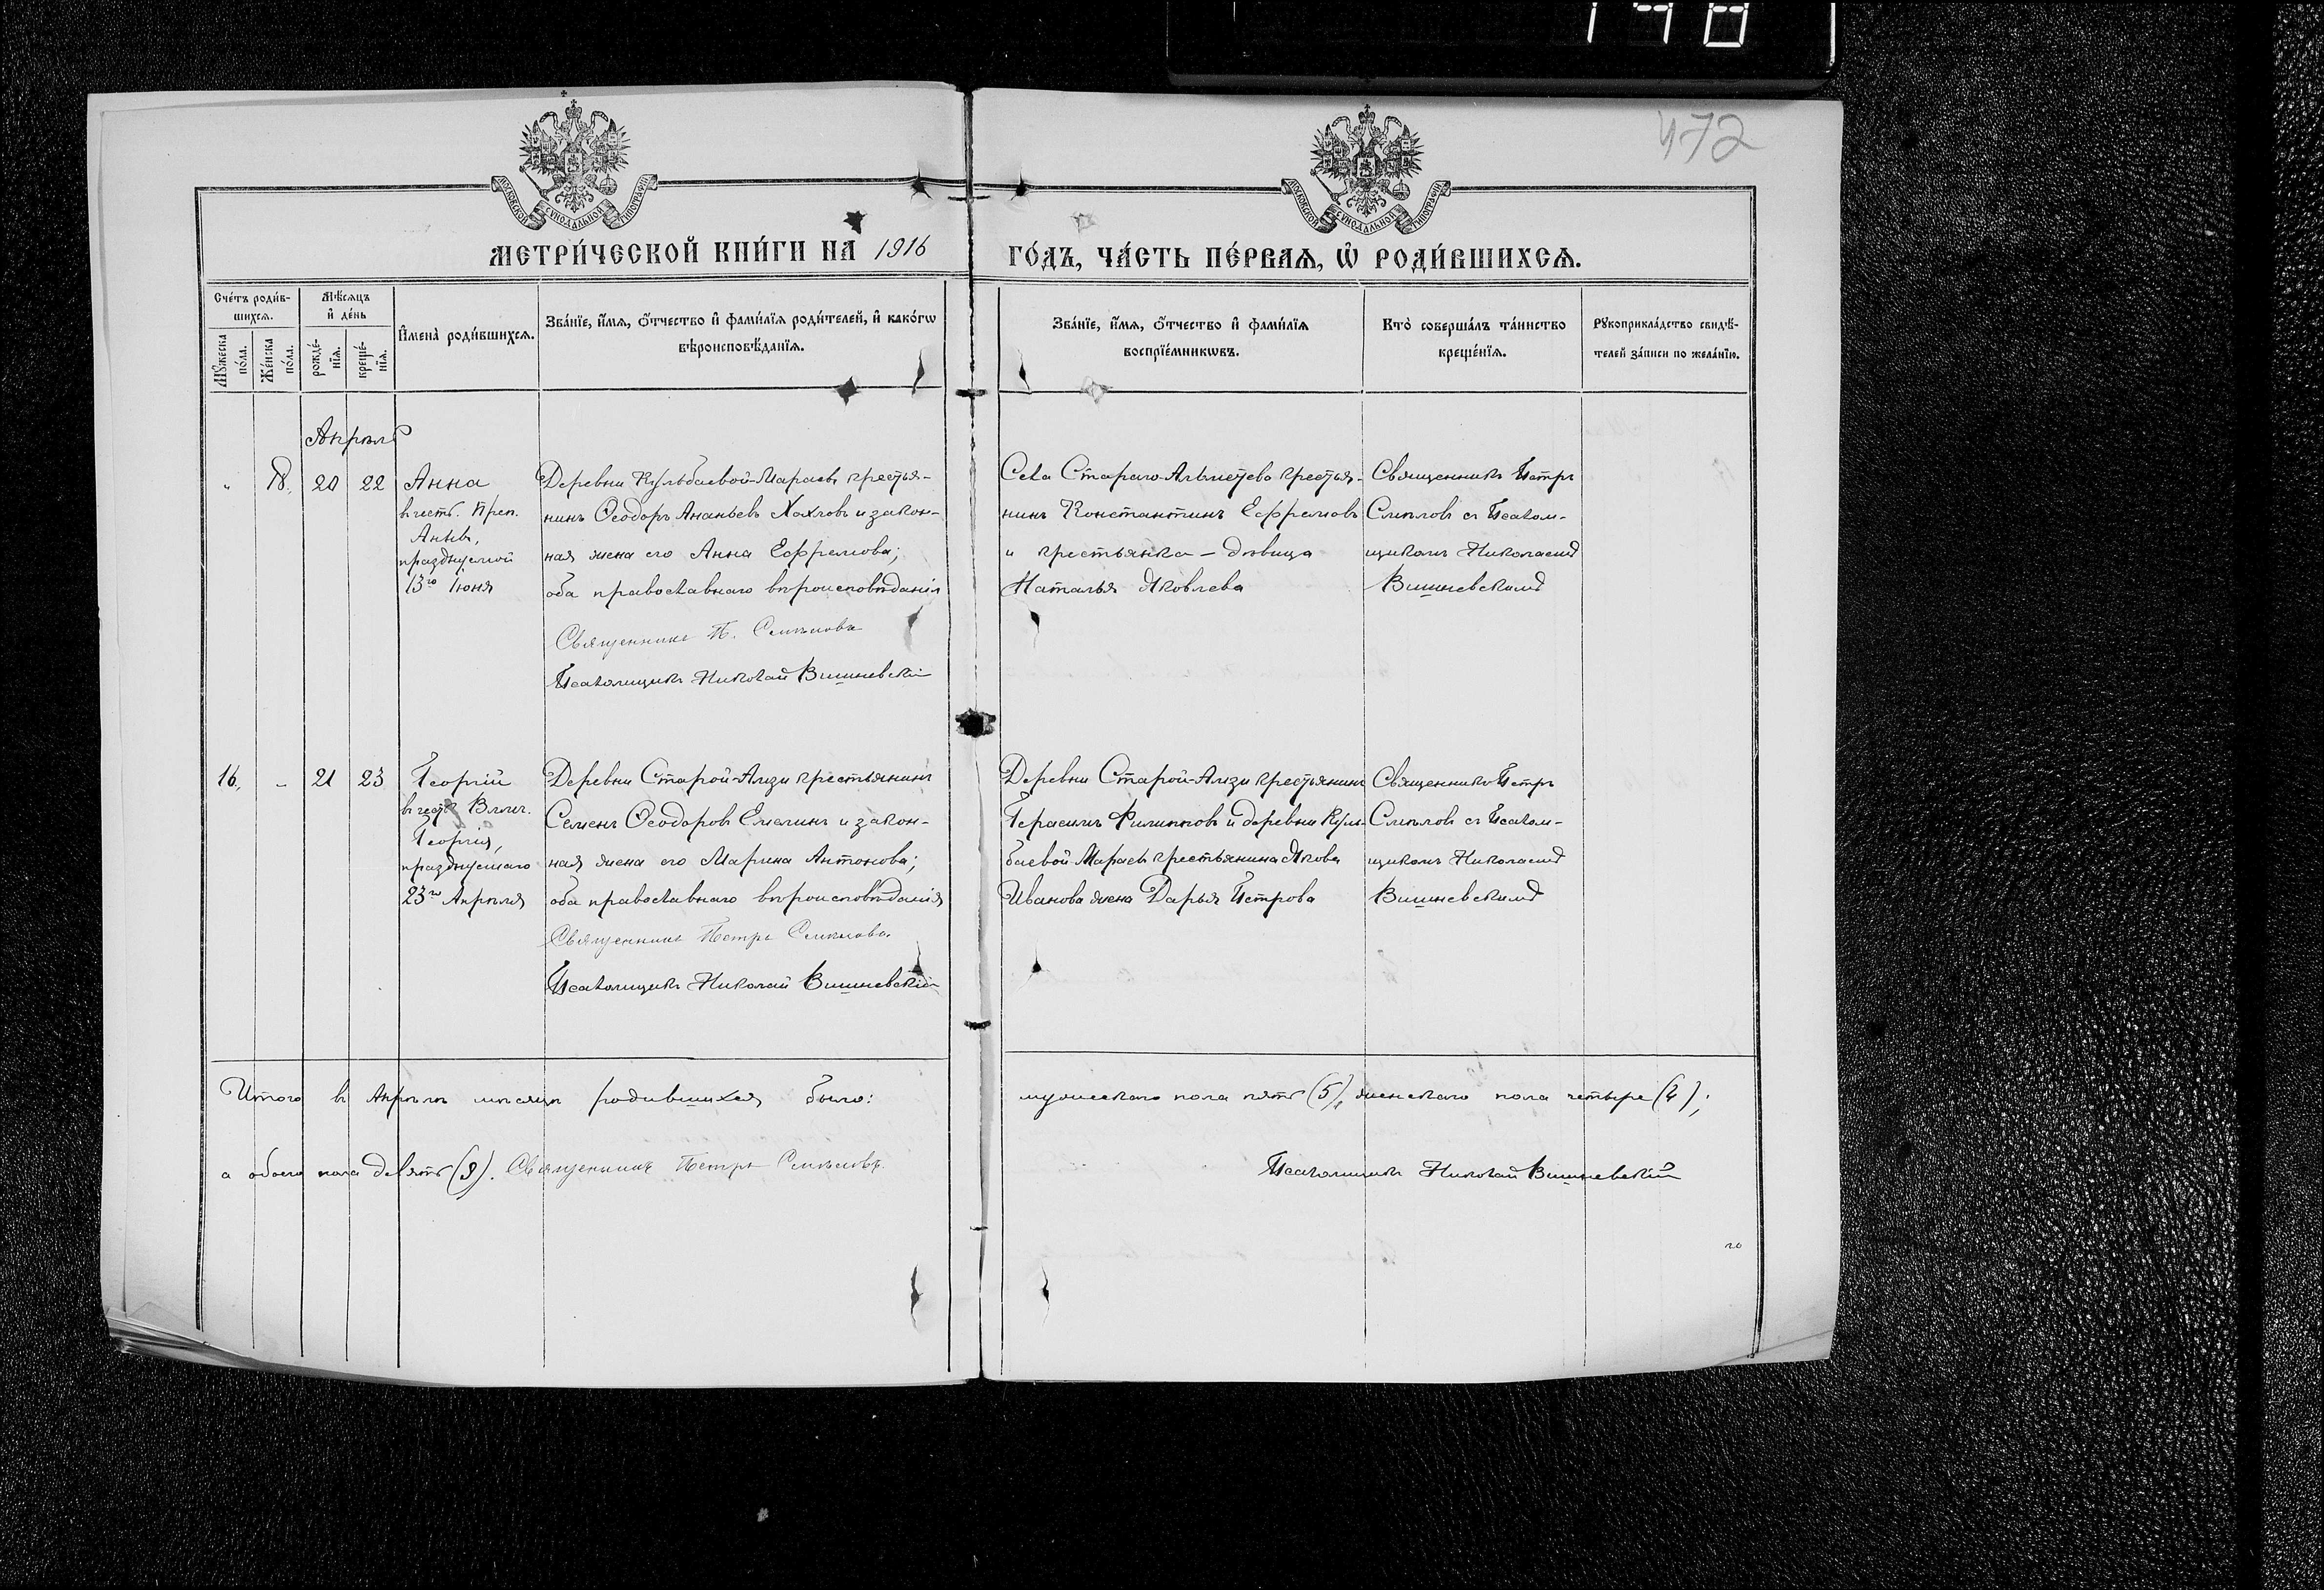 148
472
МОСКОВСКОЙ СѴНОДАЛЬНОЙ ТИПОГРАФІИ
МОСКОВСКОЙ СѴНОДАЛЬНОЙ ТИПОГРАФІИ
МЕТРИ́ЧЕСКОЙ КНИ́ГИ НА 1916
ГО́ДЪ, ЧА́СТЬ ПЕ́РВАѦ, Ѡ РОДИ́ВШИХСѦ.
Сче́тъ роди́в-
шихсѧ.
Мꙋжеска по́ла.
Же́нска по́ла.
Мѣ́сѧцъ
и҆ де́нь
рожде́-
нїѧ.
креще́-
нїѧ.
И҆мена̀ роди́вшихсѧ.
Зва́нїе, и҆́мѧ, ѻ҆́тчество и҆ фами́лїѧ роди́телей, и҆ како́гѡ
вѣроисповѣ́данїѧ.
Зва́нїе, и҆́мѧ, ѻ҆́тчество и҆ фами́лїѧ
воспрїе́мникѡвъ.
Кто̀ соверша́лъ та́инство
креще́нїѧ.
Рꙋкоприкла́дство свидѣ́-
телей за́писи по жела́нїю.
Апрѣль
" 18. 20 22
Анна
въ честь. Преп.
Анны,
празднуемой
13го Іюня
Деревни Кульбаевой-Марасы крестья-
нинъ Ѳеодоръ Ананьевъ Хохловъ и закон-
ная жена его Анна Ефремова;
оба православнаго вѣроисповѣданія
Священникъ П. Смѣловъ
Псаломщикъ Николай Вишневскій
Села Стараго-Альметева крестья-
нинъ Константинъ Ефремовъ
и крестьянка - дѣвица
Наталья Яковлева
Священникъ Петръ
Смѣловъ съ Псалом-
щикомъ Николаемъ
Вишневскимъ
16. - 21 23
Георгій
въ честь Влмч.
Георгія,
празднуемаго
23го Апрѣля
Деревни Старой-Амзи крестьянинъ
Семенъ Ѳеодоровъ Емелинъ и закон-
ная жена его Марина Антонова;
оба православнаго вѣроисповѣданія
Священникъ Петръ Смѣловъ.
Псаломщикъ Николай Вишневскій
Деревни Старой-Амзи крестьянинъ
Герасимъ Филипповъ и деревни Куль-
баевой Марасы крестьянина Якова
Иванова жена Дарья Петрова
Священникъ Петръ
Смѣловъ съ Псалом-
щикомъ Николаемъ
Вишневскимъ
Итого въ Апрѣлѣ мѣсяцѣ родившихся было:
мужескаго пола пять (5), женскаго пола четыре (4);
а обоего пола девять (9). Священникъ Петръ Смѣловъ.
Псаломщикъ Николай Вишневскій